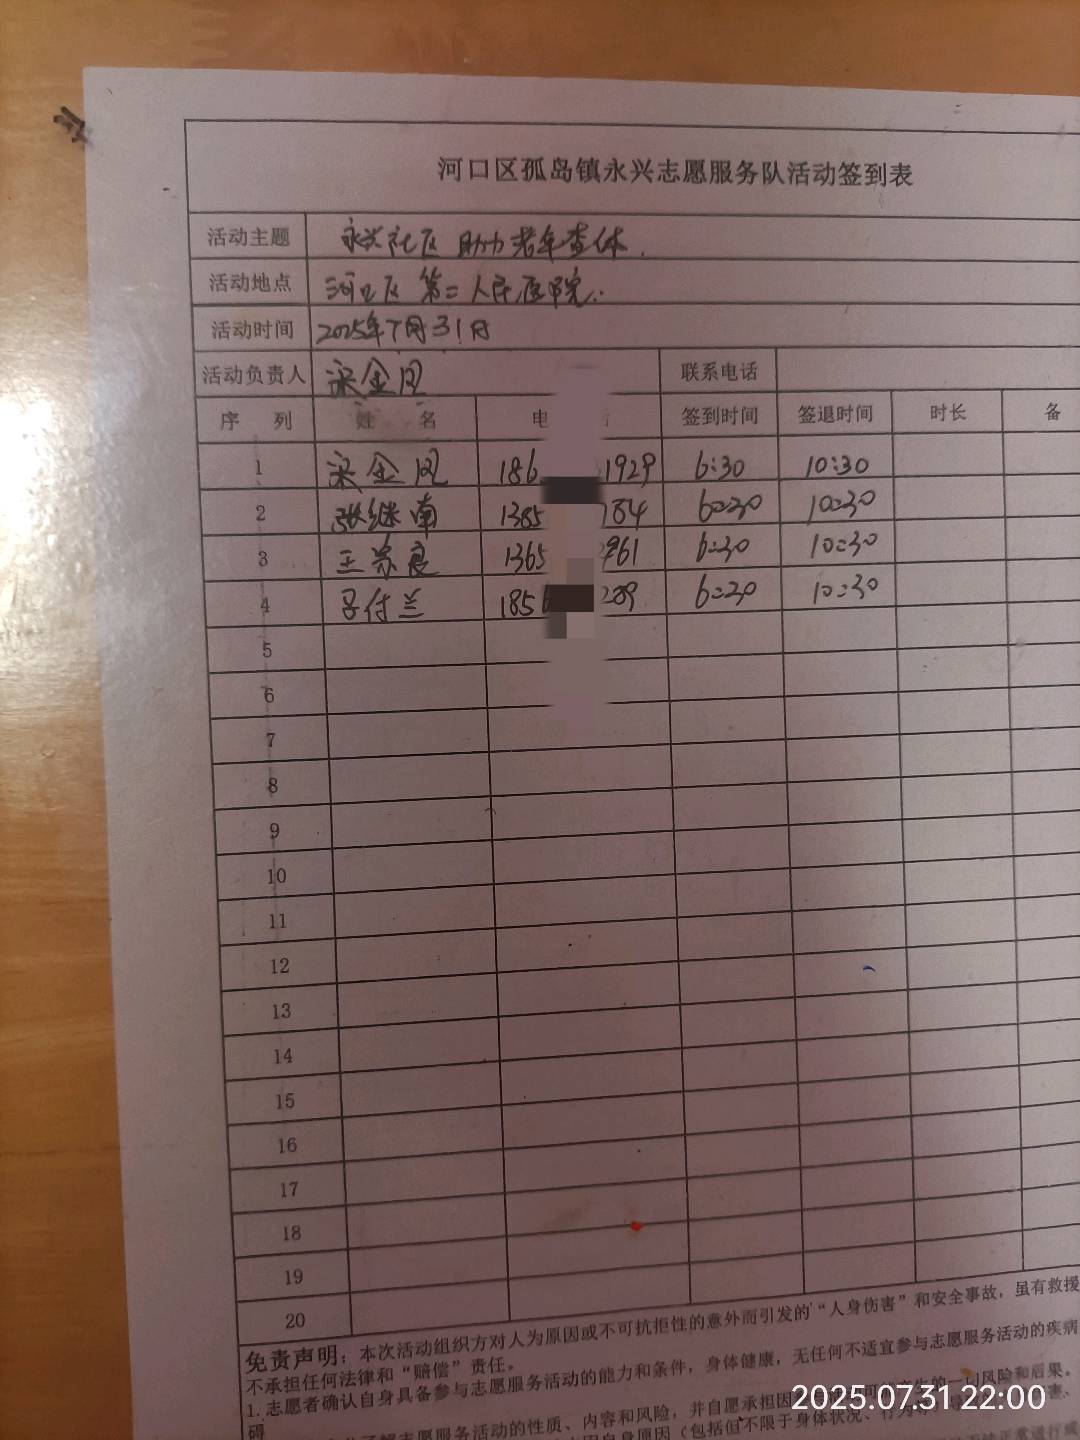 河口区孤岛镇永兴志愿服务队活动签到表
活动主题 永兴社区 助力老年查体.
活动地点 河口区 第二人民医院.
活动时间 2025年7月31日
活动负责人 梁金凤 联系电话
序 列 姓 名 电 签到时间 签退时间 时长 备
1 梁金凤 186 1929 6:30 10:30
2 张继南 1385 784 6:30 10:30
3 王 良 1365 961 6:30 10:30
4 吕付兰 1856 289 6:30 10:30
5
6
7
8
9
10
11
12
13
14
15
16
17
18
19
20
免责声明：本次活动组织方对人为原因或不可抗拒性的意外而引发的“人身伤害”和安全事故，虽有救援
不承担任何法律和“赔偿”责任。
1.志愿者确认自身具备参与志愿服务活动的能力和条件，身体健康，无任何不适宜参与志愿服务活动的疾病
碍
了解志愿服务活动的性质、内容和风险，并自愿承担因 风险和后果。
因自身原因（包括但不限于身体状况、行为
2025.07.31 22:00